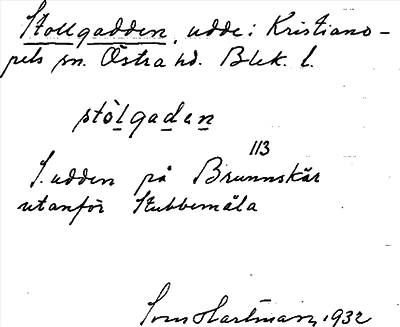 Stollgadden, udde i Kristiano-
pels sn. Östra hd. Blek. l.
stòlgadɛn
113
S. udden på Brunnskär
utanför Stubbemåla
Sven Hartman, 1932